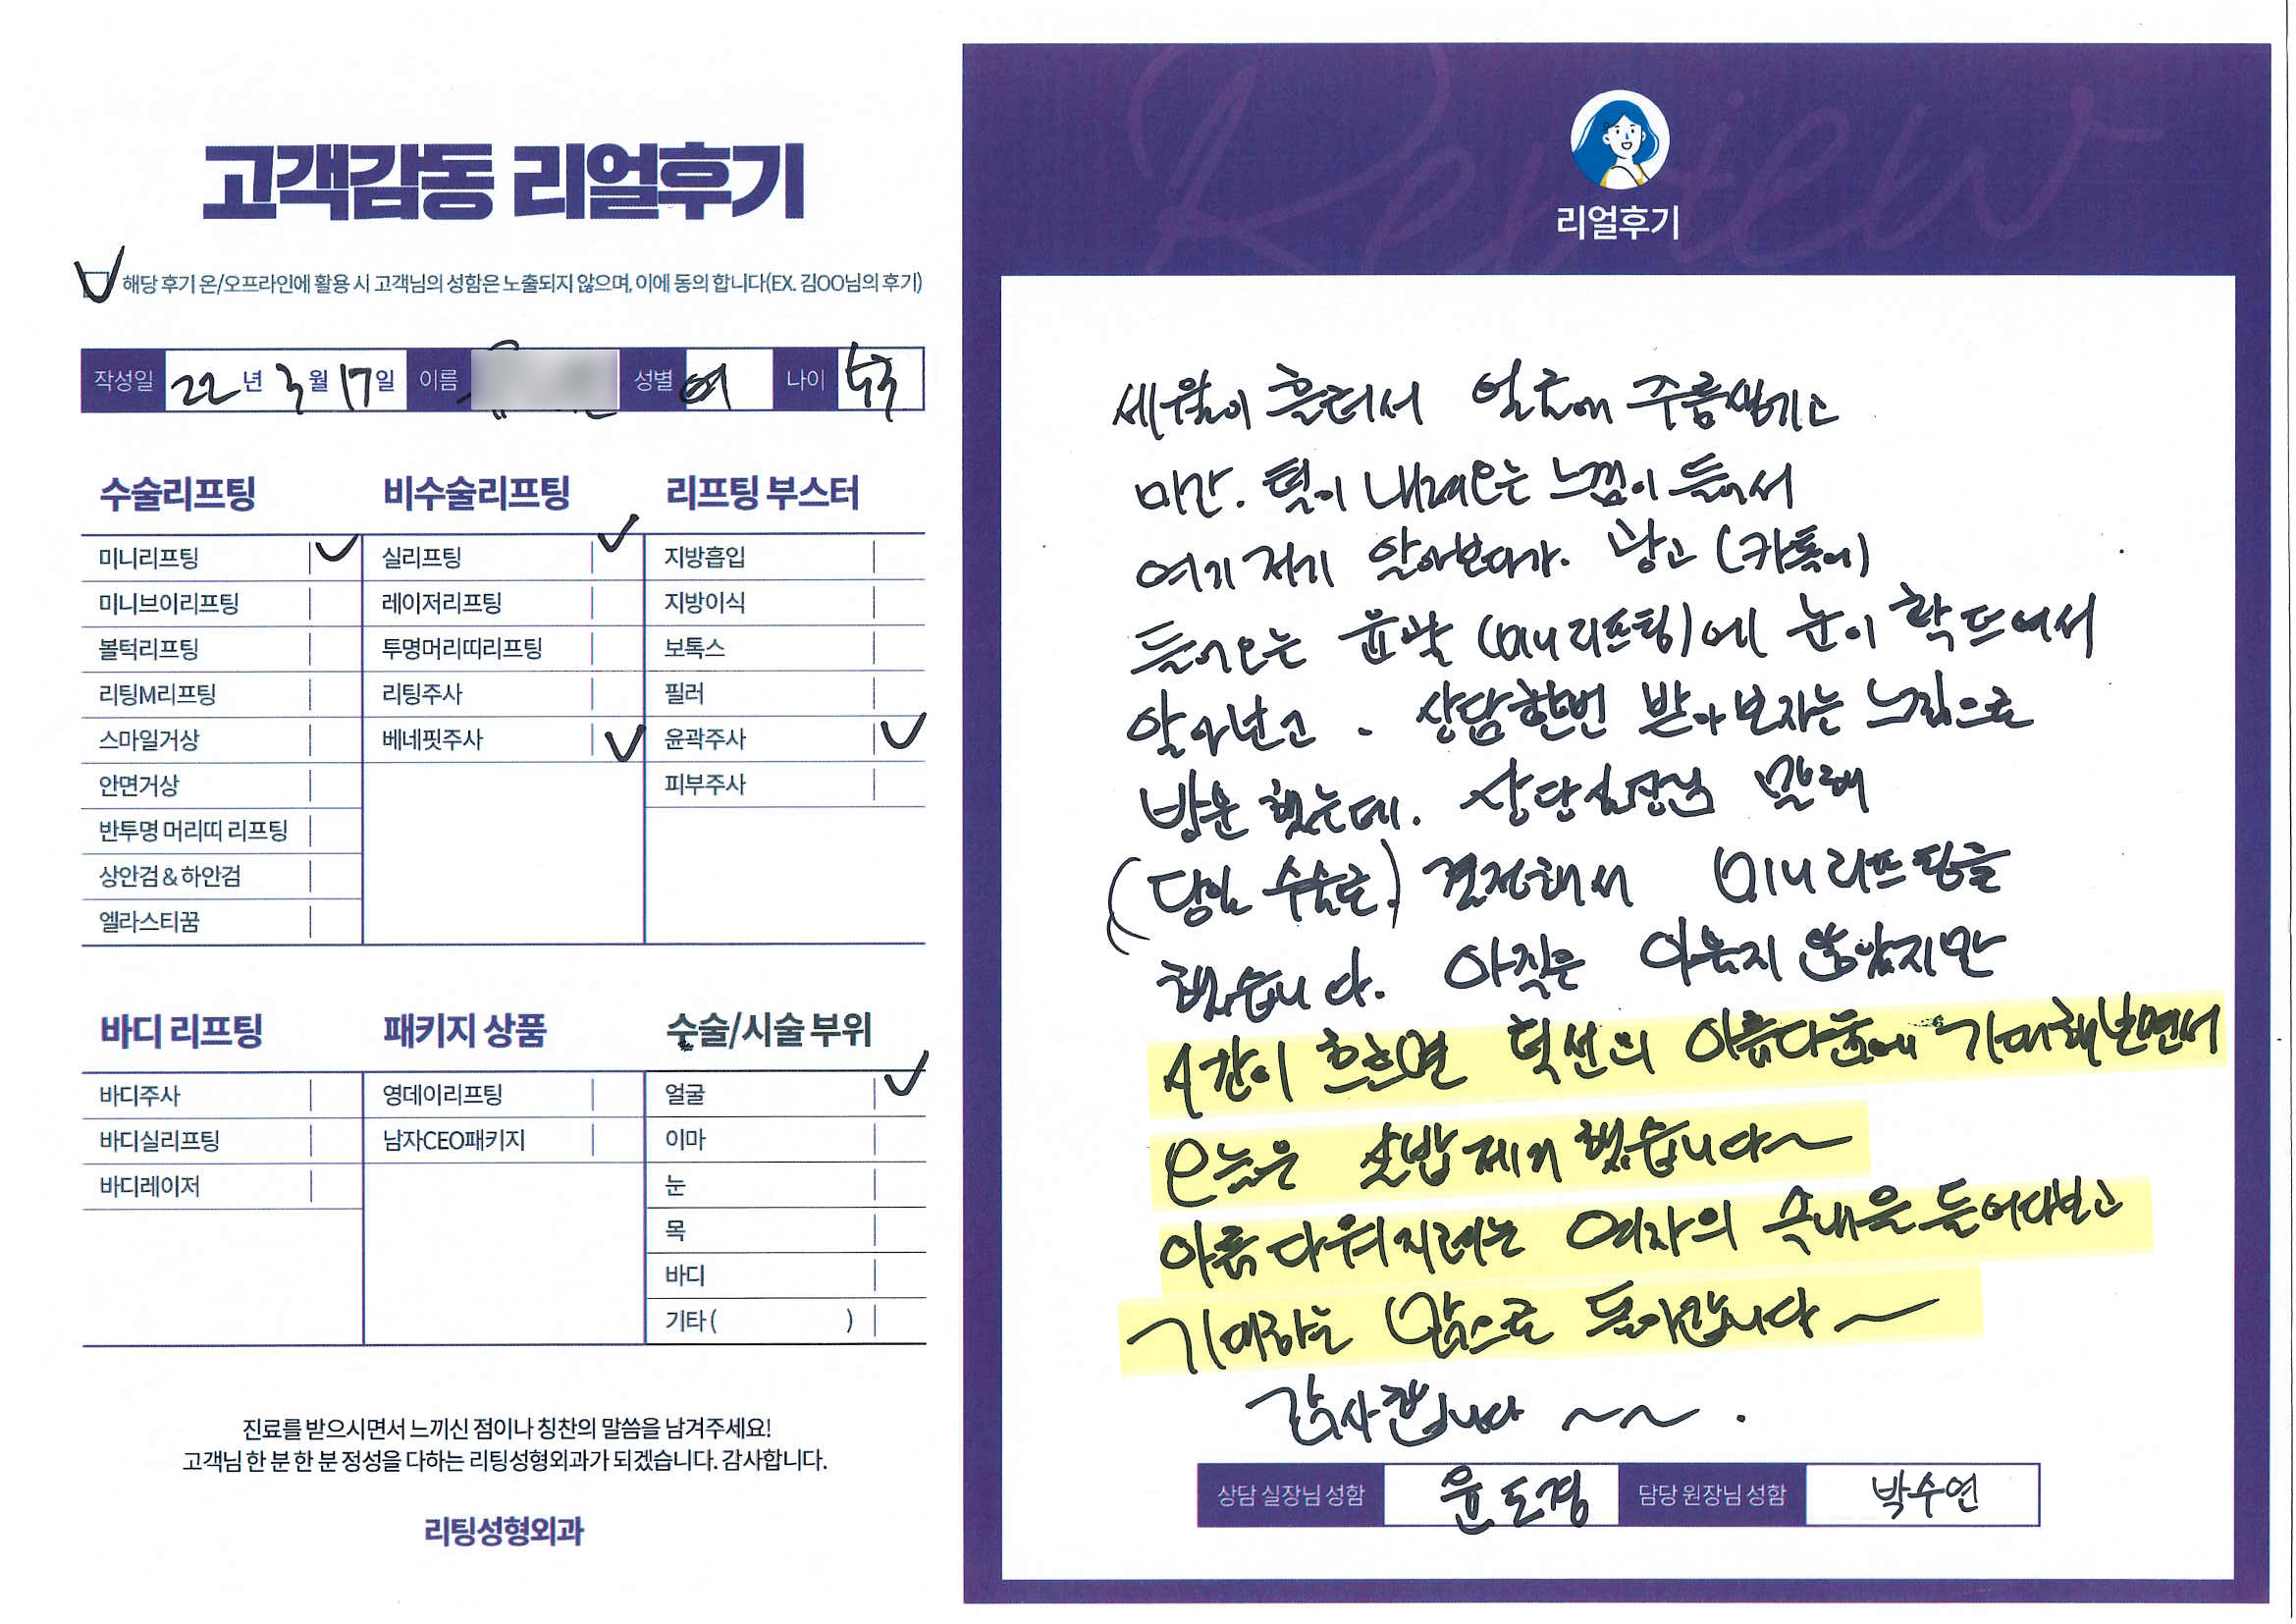 고객감동 리얼후기
해당 후기 온/오프라인에 활용 시 고객님의 성함은 노출되지 않으며, 이에 동의 합니다(EX. 김OO님의 후기)
작성일 22년 3월 17일 이름 성별 여 나이
수술리프팅
미니리프팅
미니브이리프팅
볼턱리프팅
리팅M리프팅
스마일거상
안면거상
반투명 머리띠 리프팅
상안검 & 하안검
엘라스티꿈
비수술리프팅
실리프팅
레이저리프팅
투명머리띠리프팅
리팅주사
베네핏주사
리프팅 부스터
지방흡입
지방이식
보톡스
필러
윤곽주사
피부주사
바디 리프팅
바디주사
바디실리프팅
바디레이저
패키지 상품
영데이리프팅
남자CEO패키지
수술/시술 부위
얼굴
이마
눈
목
바디
기타 ( )
진료를 받으시면서 느끼신 점이나 칭찬의 말씀을 남겨주세요!
고객님 한 분 한 분 정성을 다하는 리팅성형외과가 되겠습니다. 감사합니다.
리팅성형외과
Review
리얼후기
세월이 흘러서 얼굴에 주름생기고
미간. 턱이 내려오는 느낌이 들어서
여기 저기 알아보다가. 광고 (카톡에)
들어오는 윤곽 (미니리프팅)에 눈이 확 뜨여서
알아보고. 상담한번 받아 보자는 느낌으로
방문 했는데. 상담실장님 말에
(당일 수술로.) 결정해서 미니리프팅을
했습니다. 아직은 아물지 않았지만
시간이 흐르면 턱선의 아름다움에 기대해보면서
오늘은 실밥제거 했습니다~
아름다워지려는 여자의 속내을 들여다보고
기대하는 맘으로 돌아갑니다~
감사합니다 ~~.
상담 실장님 성함 윤도경 담당 원장님 성함 박수연